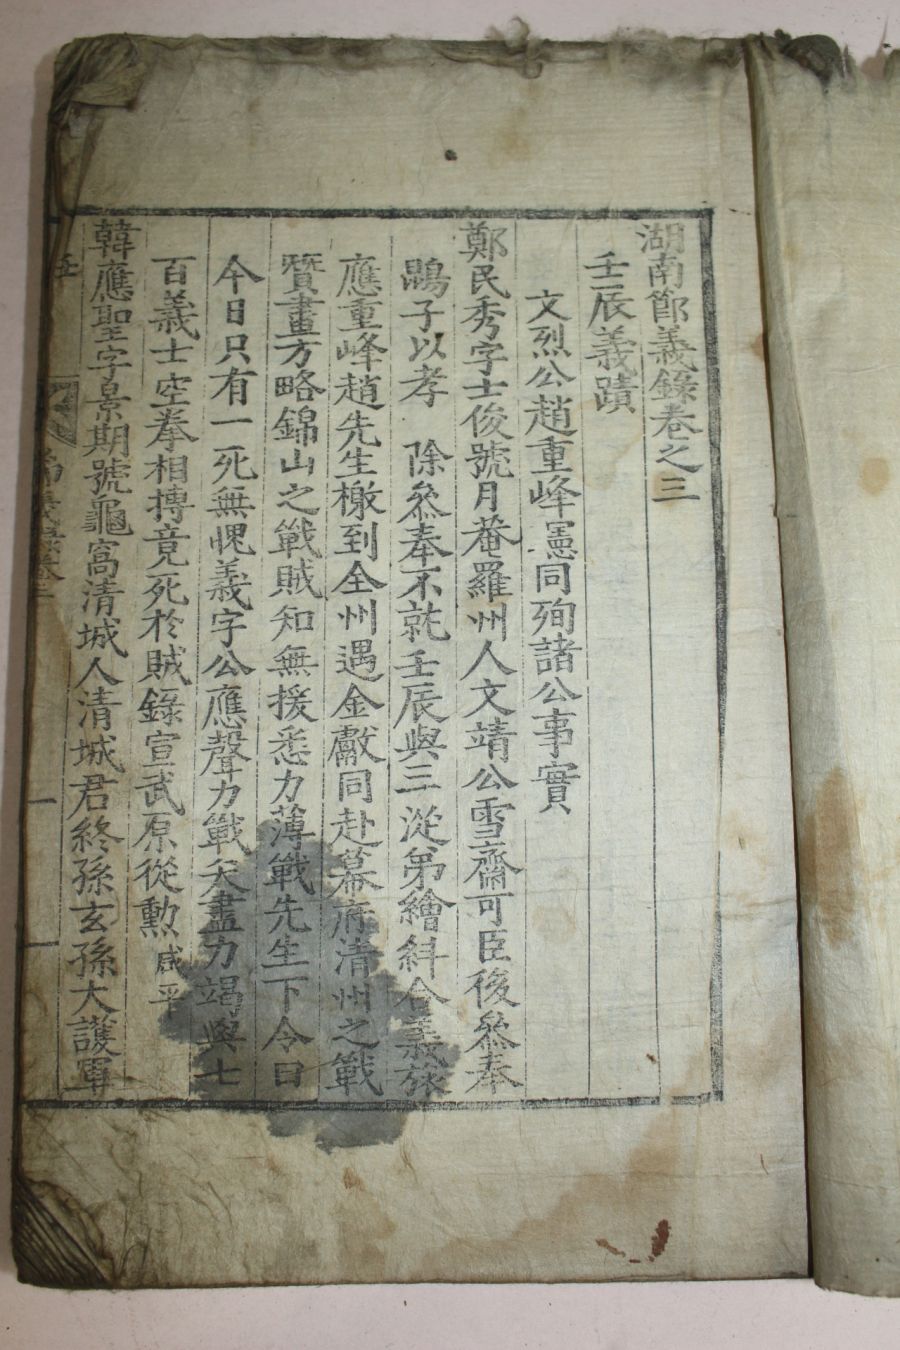 湖南節義錄卷之三
壬辰義蹟
文烈公趙重峰憲同殉諸公事實
鄭民秀字士俊號月菴羅州人文靖公雪齋可臣後叅奉
鵾子以孝 除叅奉不就壬辰與三從弟繪糾合義旅
應重峰趙先生檄到全州遇金獻同赴幕府清州之戰
贊畫方略錦山之戰賊知無援悉力薄戰先生下令曰
今日只有一死無愧義字公應聲力戰矢盡力竭與七
百義士空拳相搏竟死於賊錄宣武原從勳 咸平
韓應聖字景期號龜窩清城人清城君終孫玄孫大護軍